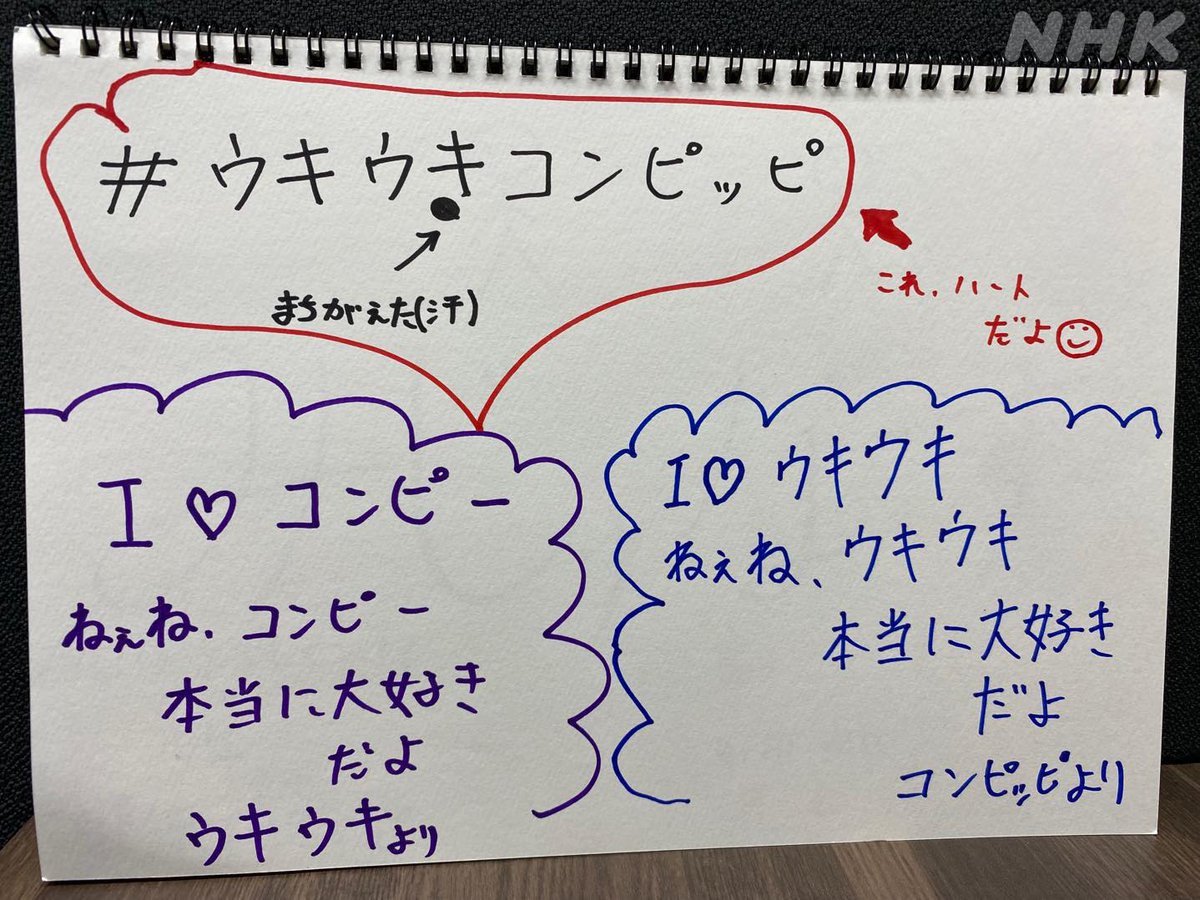 NHK
#ウキウキコンピッピ
まちがえた(汗)
これ、ハート
だよ
I♡コンピー
ねぇね、コンピー
本当に大好き
だよ
ウキウキより
I♡ウキウキ
ねぇね、ウキウキ
本当に大好き
だよ
コンピッピより